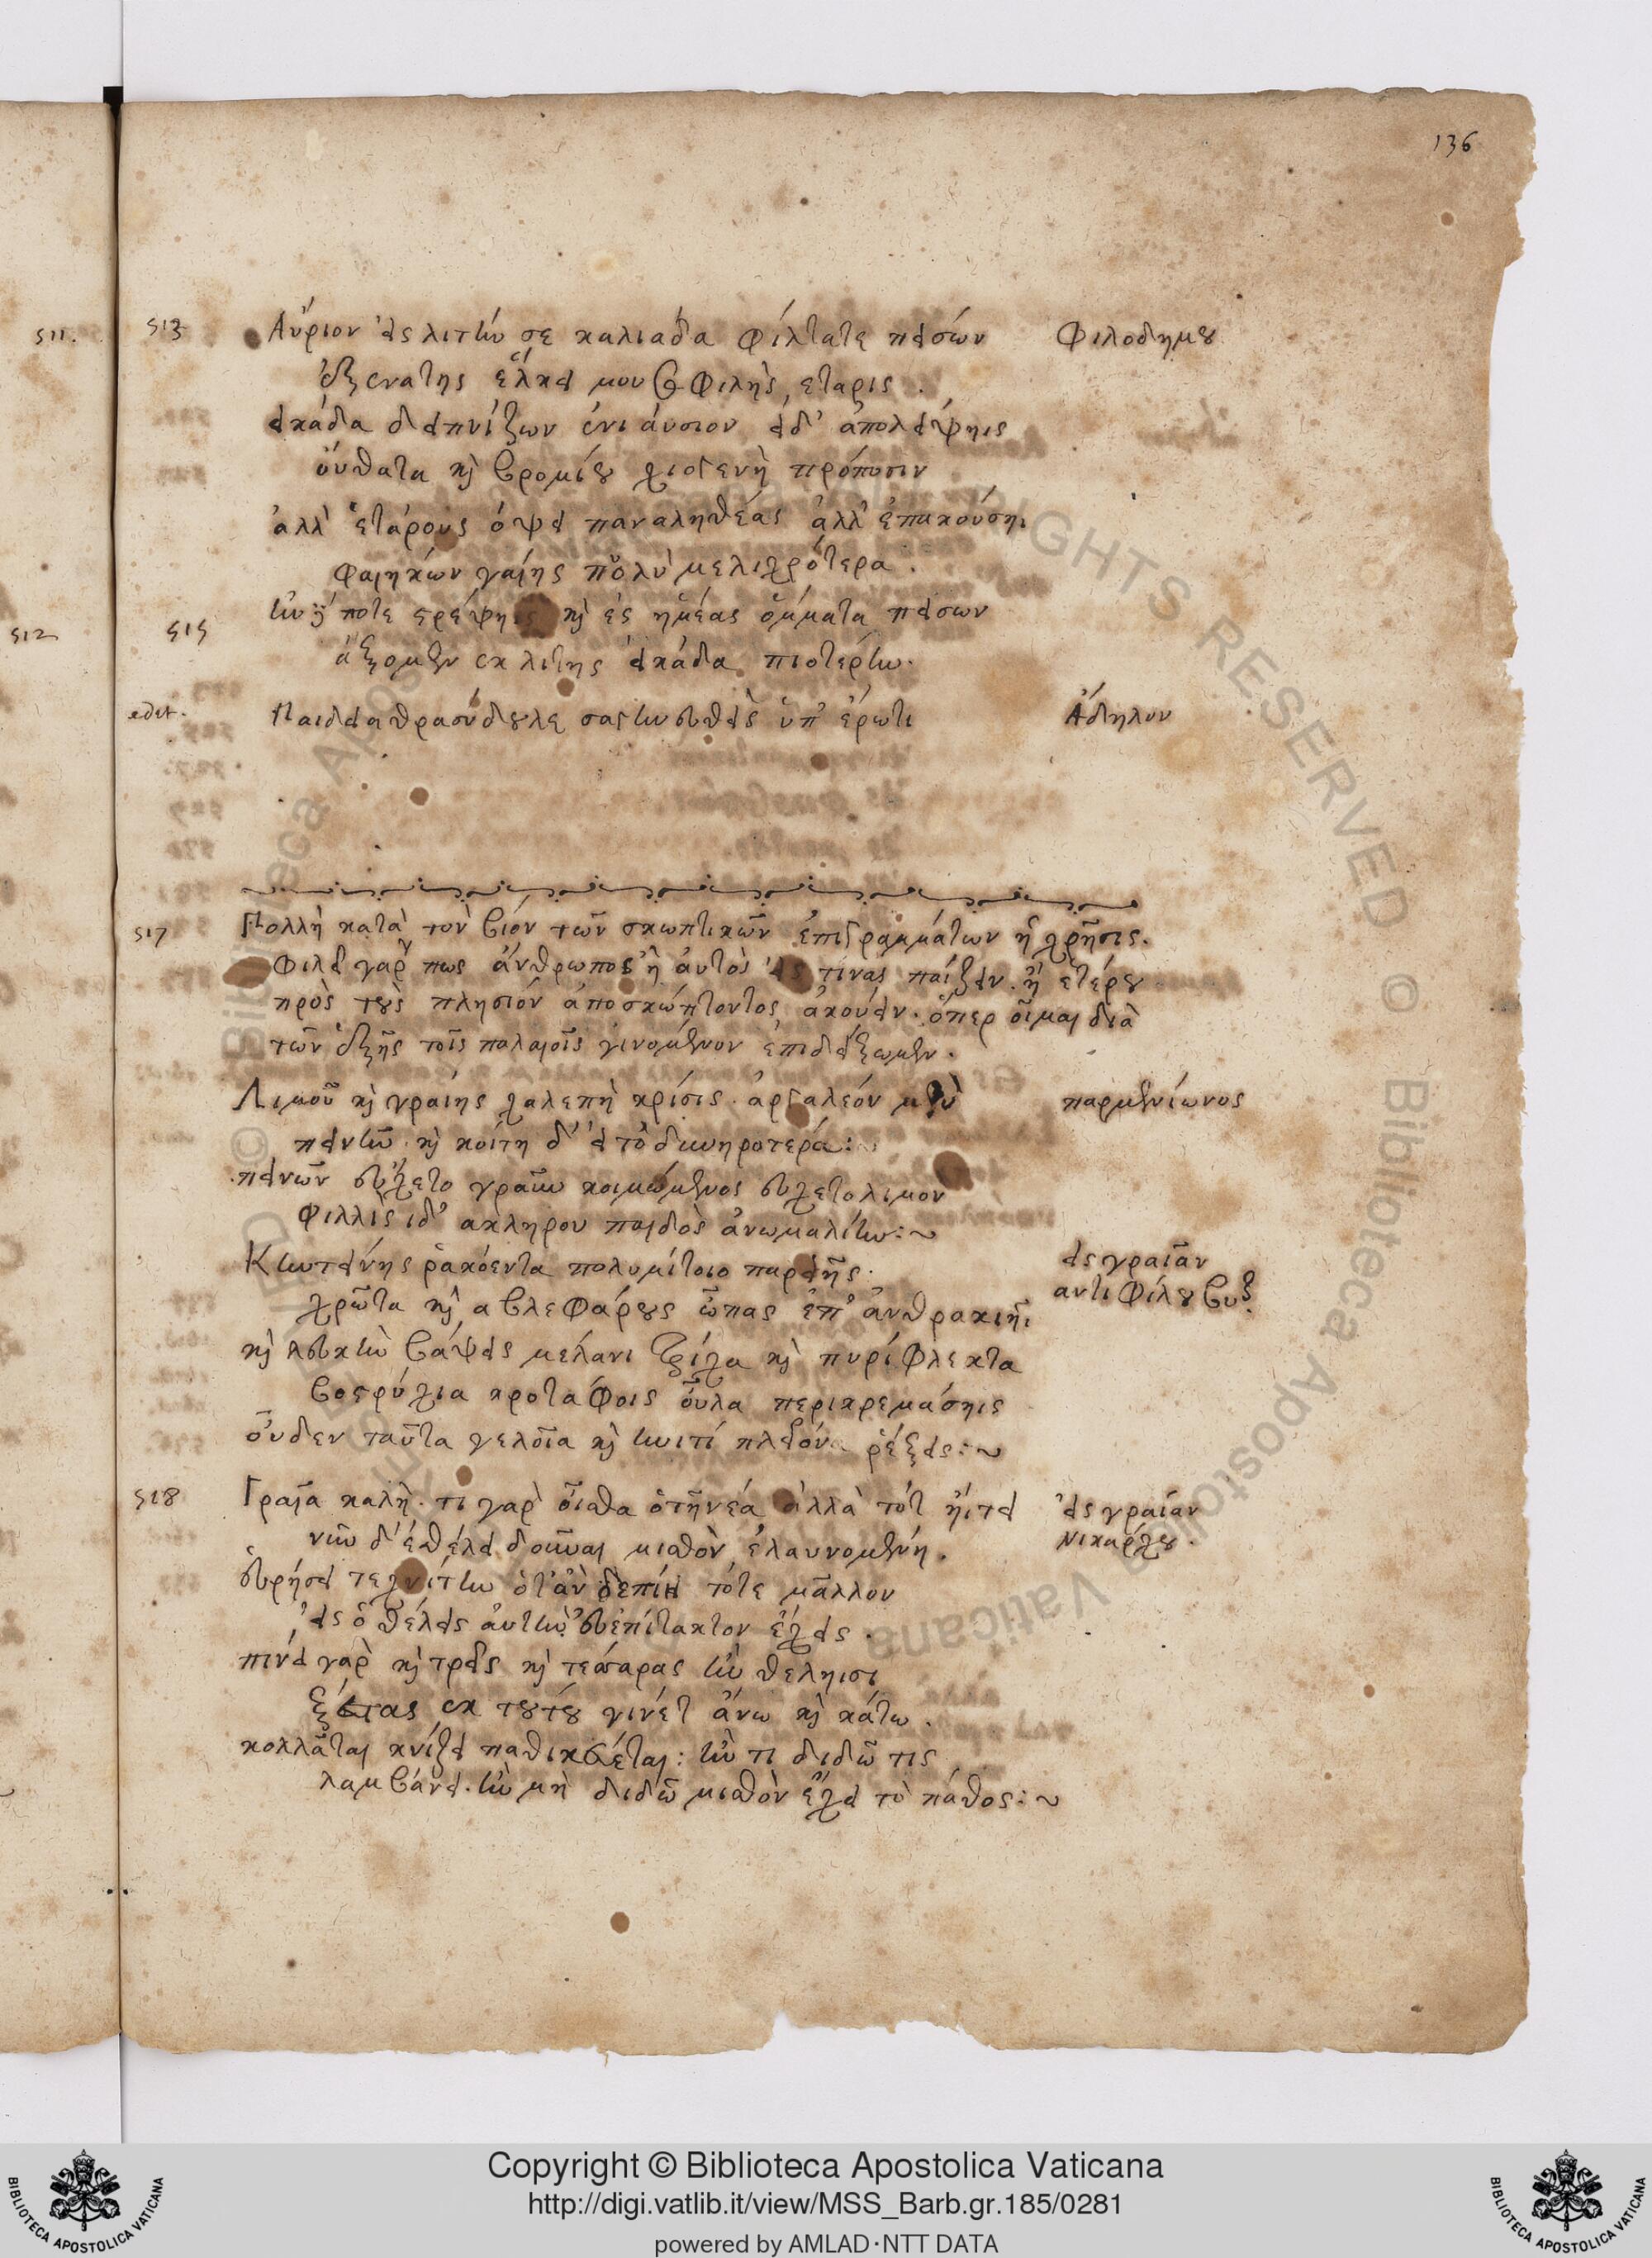 136
511.
513
Αύριον εἰς λιτήν σε καλιάδα φίλτατε πείσων
Φιλοδημου
ἐξ ενατης ἕλκει μουσοφιλὴς εταρις.
εικάδα δειπνίζων ενιαύσιον ει δ' ἀπολείψηις
ούθατα καὶ βρομίου χιογενῆ πρόποσιν
ἀλλ' ἑτάρους όψει παναληθέας ἀλλ' ἐπακούσηι
φαιηκων γαίης πολὺ μελιχρότερα.
512
515
ἢν δέ ποτε στρέψηις καὶ ἐς ημέας ὄμματα πεισων
ἄξομεν εκ λιτης εἰκάδα πιοτέρην.
edit.
Παιδεια θρασύδουλε σαγηνευθεὶς ὑπ' ἐρωτι
Ἄδηλον
517
Πολλὴ κατὰ τὸν βίον τῶν σκωπτικῶν ἐπιγραμμάτων ἡ χρῆσις.
Φιλεῖ γαρ πως ἄνθρωπος ἢ ἀυτὸς εἰς τινας παίζειν. ἢ ετέρου
πρὸς τοὺς πλησιόν ἀποσκώπτοντος ἀκούειν. ὅπερ οἶμαι διὰ
τῶν ἑξῆς τοῖς παλαιοῖς γινομενον ἐπιδείξωμεν.
Λιμοῦ καὶ γραίης χαλεπὴ κρίσις. ἀργαλεόν μὲν
παρμενίωνος
πεινῆν. καὶ κοίτη δ' ετ' οδυνηροτερά:
πεινῶν εὔχετο γραῖην κοιμώμενος ευχετο λιμον
Φιλλὶς ιδ' ακληρου παιδὸς ἀνωμαλίην:~
Κην τείνης ῥακόεντα πολυμίτοιο παρειῆς.
εις γραῖαν
χρῶτα καὶ α βλεφάρους ὦπας ἐπ' ἀνθρακιῆι
αντιφίλου βυζ.
καὶ λευκὴν βάψεις μέλανι τρίχα καὶ πυρίφλεκτα
βοστρύχια κροτάφοις οὖλα περικρεμάσηις
οὐδεν ταῦτα γελοῖα καὶ ην τι πλεῖον ρέξεις:~
518
Γραῖα καλὴ. τι γαρ οἶσθα ὅτ' ἦν νέα ἀλλὰ τότ' ἤιτει
εἰς γραίαν
νῦν δ' ἐθέλει δοῦναι μισθὸν ἐλαυνομενη.
Νικαρχου.
εὑρήσει τεχνίτην ὁτ' ἀν δεπίη τότε μᾶλλον
εἰς ὃ θέλεις ἀυτὴν εὐεπίτακτον ἔχεις.
πινει γαρ καὶ τρεῖς καὶ τεσσαρας ἢν θεληισι
ξέστας εκ τούτου γίνετ ἄνω καὶ κάτω.
κολλᾶται κνίζει παθικεύεται: ἢν τι διδῶ τις
λαμβάνει. ἢν μὴ διδῶ μισθὸν ἔχει τὸ πάθος:~
Copyright © Biblioteca Apostolica Vaticana
http://digi.vatlib.it/view/MSS_Barb.gr.185/0281
powered by AMLAD·NTT DATA